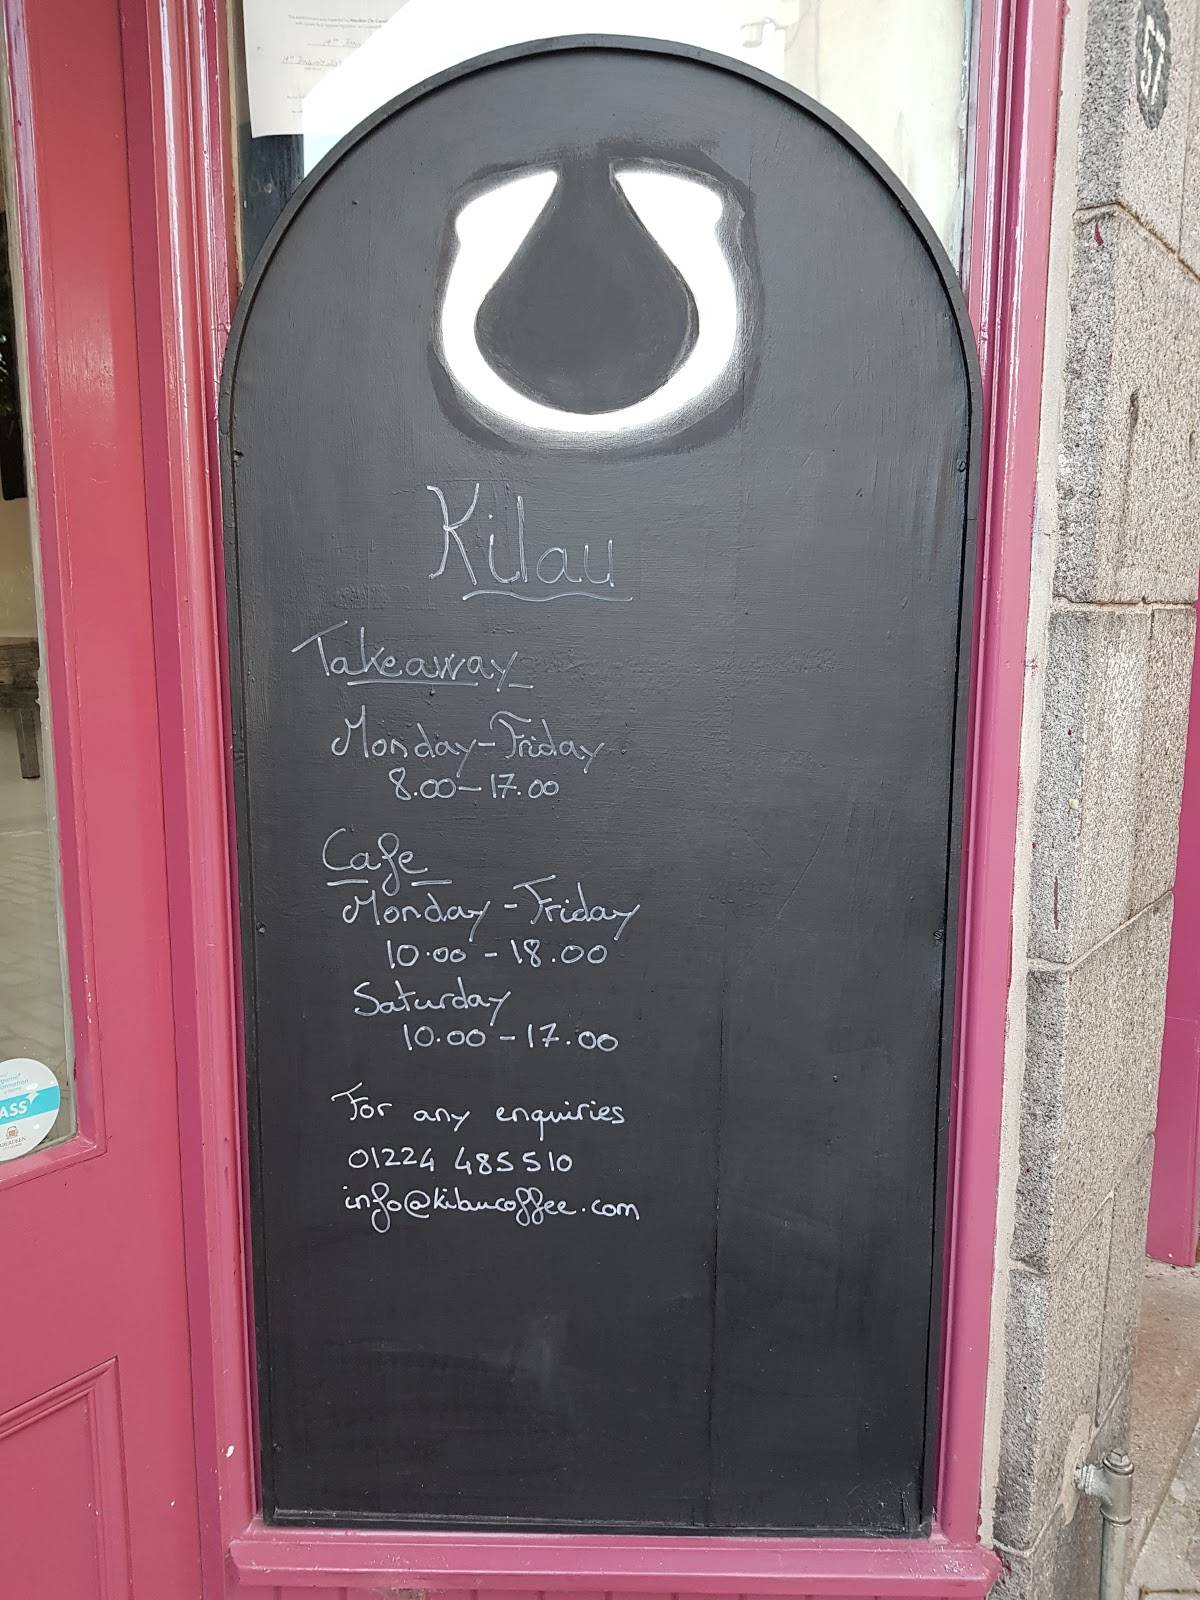 57
Kilau
Takeaway
Monday-Friday
8.00-17.00
Cafe
Monday-Friday
10.00-18.00
Saturday
10.00-17.00
For any enquiries
01224 485510
info@kilaucoffee.com